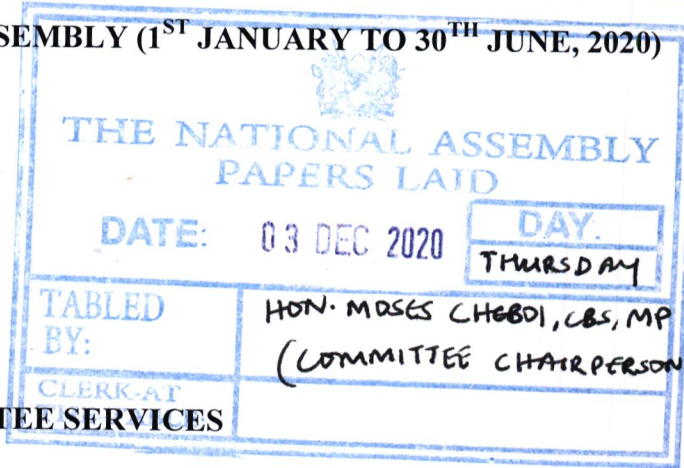 SEMBLY (1ST JANUARY TO 30TH JUNE, 2020)
THE NATIONAL ASSEMBLY
PAPERS LAID
DATE: 03 DEC 2020
DAY.
THURSDAY
TABLED
BY:
HON. MOSES CHEBOI, CBS, MP
(COMMITTEE CHAIRPERSON
CLERK-AT
TEE SERVICES